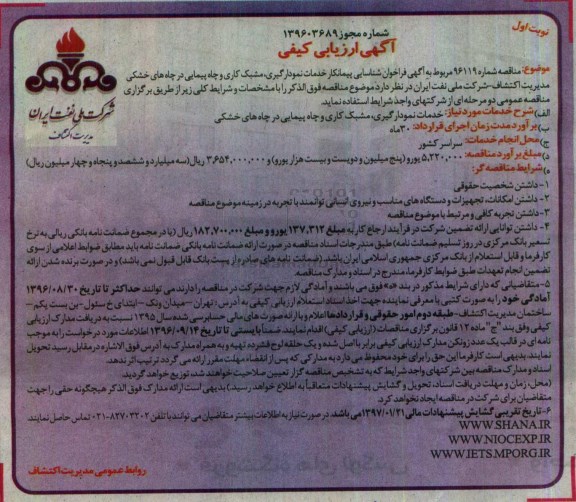 نوبت اول
شماره مجوز ۱۳۹۶۰۳۶۸۹
آگهی ارزیابی کیفی
شرکت ملی نفت ایران
مدیریت اکتشاف
موضوع: مناقصه شماره ۹۶۱۱۹ مربوط به آگهی فراخوان شناسایی پیمانکار خدمات نمودارگیری، مشبک کاری و چاه پیمایی در چاه های خشکی
مدیریت اکتشاف-شرکت ملی نفت ایران در نظر دارد موضوع مناقصه فوق الذکر را با مشخصات و شرایط کلی زیر از طریق برگزاری
مناقصه عمومی دو مرحله ای از شرکتهای واجد شرایط استفاده نماید.
الف) شرح خدمات مورد نیاز: خدمات نمودارگیری، مشبک کاری و چاه پیمایی در چاه های خشکی
ب) برآورد مدت زمان اجرای قرارداد: ۳۰ ماه
ج) محل انجام خدمات: سراسر کشور
د) مبلغ برآورد مناقصه: ۵,۲۲۰,۰۰۰ یورو (پنج میلیون و دویست و بیست هزار یورو) و ۳,۶۵۴,۰۰۰,۰۰۰ ریال (سه میلیارد و ششصد و پنجاه و چهار میلیون ریال)
ه) شرایط مناقصه گر:
۱- داشتن شخصیت حقوقی
۲- داشتن امکانات، تجهیزات و دستگاه های مناسب و نیروی انسانی توانمند با تجربه در زمینه موضوع مناقصه
۳- داشتن تجربه کافی و مرتبط با موضوع مناقصه
۴- داشتن توانایی ارائه تضمین شرکت در فرآیند ارجاع کار به مبلغ ۱۳۷,۳۱۲ یورو و مبلغ ۱۸۲,۷۰۰,۰۰۰ ریال (یا در مجموع ضمانت نامه بانکی ریالی به نرخ
تسعیر بانک مرکزی در روز تسلیم ضمانت نامه) طبق مندرجات اسناد مناقصه در صورت ارائه ضمانت نامه بانکی ضمانت نامه باید مطابق ضوابط اعلامی از سوی
کارفرما و قابل استعلام از بانک مرکزی جمهوری اسلامی ایران باشد. (ضمانت نامه های صادره از پست بانک قابل قبول نمی باشد) و در صورت برنده شدن ارائه
تضمین انجام تعهدات طبق ضوابط کارفرما، مندرج در اسناد و مدارک مناقصه.
۵- متقاضیانی که دارای شرایط مذکور در بند «ه» فوق می باشند و آمادگی لازم جهت شرکت در مناقصه را دارند می توانند حداکثر تا تاریخ ۱۳۹۶/۰۸/۳۰
آمادگی خود را به صورت کتبی با معرفی نماینده جهت اخذ اسناد استعلام ارزیابی کیفی به آدرس: تهران -میدان ونک- ابتدای خ سئول -بن بست یکم-
ساختمان مدیریت اکتشاف- طبقه دوم امور حقوقی و قراردادها اعلام و با ارائه صورت های مالی حسابرسی شده سال ۱۳۹۵ نسبت به دریافت مدارک ارزیابی
کیفی وفق بند "ج" ماده ۱۲ قانون برگزاری مناقصات (ارزیابی کیفی) اقدام نمایند. ضمناً بایستی تا تاریخ ۱۳۹۶/۰۹/۱۴ اطلاعات مورد درخواست را به موجب
نامه ای در قالب یک عدد زونکن مدارک ارزیابی کیفی برابر با اصل شده و یک حلقه لوح فشرده تهیه و به همراه مدارک به آدرس فوق الاشاره در مقابل رسید تحویل
نمایند. بدیهی است کارفرما این حق را برای خود محفوظ می دارد به مدارکی که پس از انقضاء مهلت مقرر ارائه می گردد ترتیب اثر ندهد.
اسناد و مدارک مناقصه بین شرکتهای واجد شرایط که به تشخیص مناقصه گزار تعیین صلاحیت خواهند شد، توزیع خواهد گردید.
(محل، زمان و مهلت دریافت اسناد، تحویل و گشایش پیشنهادات متعاقباً به اطلاع خواهد رسید.) بدیهی است ارائه مدارک فوق الذکر هیچگونه حقی را جهت
متقاضیان برای شرکت در مناقصه ایجاد نخواهد کرد.
۶- تاریخ تقریبی گشایش پیشنهادات مالی ۱۳۹۷/۰۱/۲۱ می باشد. در صورت نیاز به اطلاعات بیشتر متقاضیان می توانند با تلفن ۸۲۷۰۳۲۰۲-۰۲۱ تماس حاصل نمایند.
WWW.SHANA.IR
WWW.NIOCEXP.IR
WWW.IETS.MPORG.IR
روابط عمومی مدیریت اکتشاف